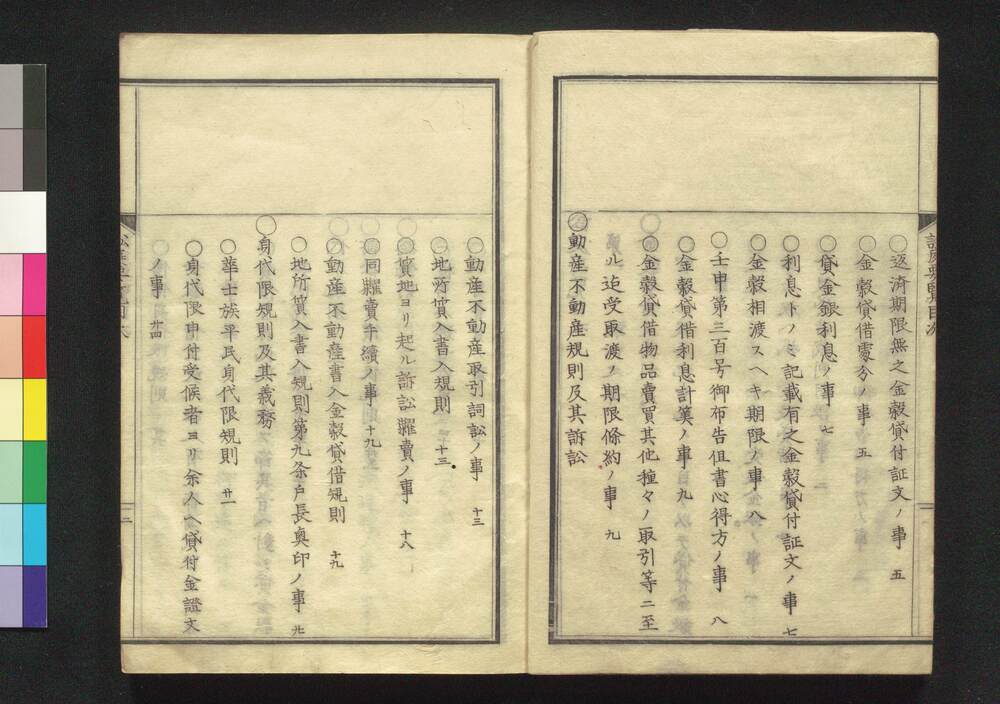 ○返済期限無之金穀貸付証文ノ事 五
○金穀貸借處分ノ事 五
○貸金銀利息ノ事 七
○利息トノミ記載有之金穀貸付証文ノ事 七
○金穀相渡スヘキ期限ノ事 八
○壬申第三百号御布告但書心得方ノ事 八
○金穀貸借利息計筭ノ事 九
○金穀貸借物品賣買其他種々ノ取引等ニ至
ル迠受取渡ノ期限條約ノ事 九
○動産不動産規則及其訴訟
○動産不動産取引詞訟ノ事 十三
○地所質入書入規則 十三
○質地ヨリ起ル訴訟糶賣ノ事 十八
○同糶賣手續ノ事 十九
○動産不動産書入金穀貸借規則 十九
○地所質入書入規則第九条戸長奥印ノ事 廿
○身代限規則及其義務
○華士族平民身代限規則 廿一
○身代限申付受候者ヨリ余人ヘ貸付金證文
ノ事 廿四